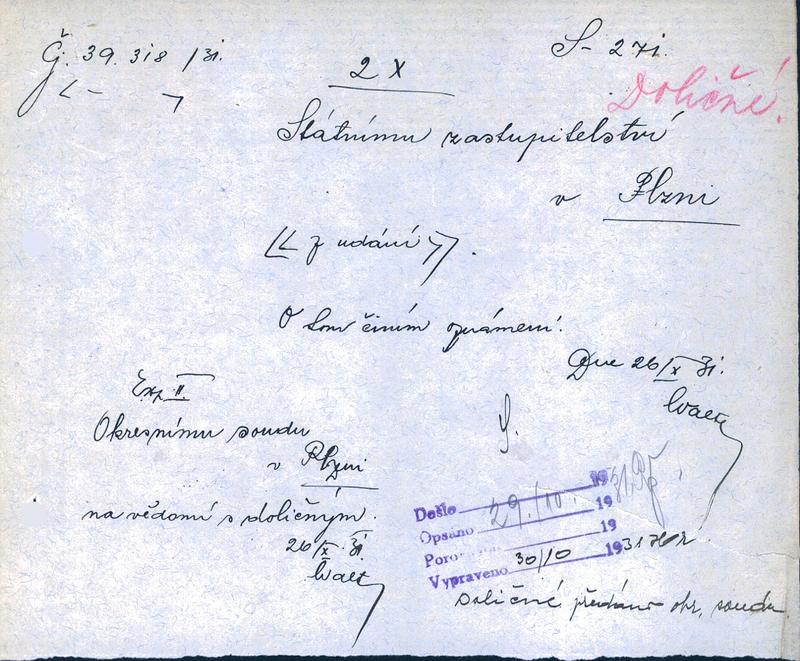 Č. 39.318/31.
S- 271.
2 X
Doličné.
Státnímu zastupitelství
v Plzni
z udání
O tom činím oznámení.
Dne 26/X 31.
Exp. II.
Okresnímu soudu
v Plzni
na vědomí s doličným.
26/X. 31.
Došlo 19
Opsáno 29./10. 1931
Porov 19
Vypraveno 30/10 1931
Doličné předáno okr. soudu